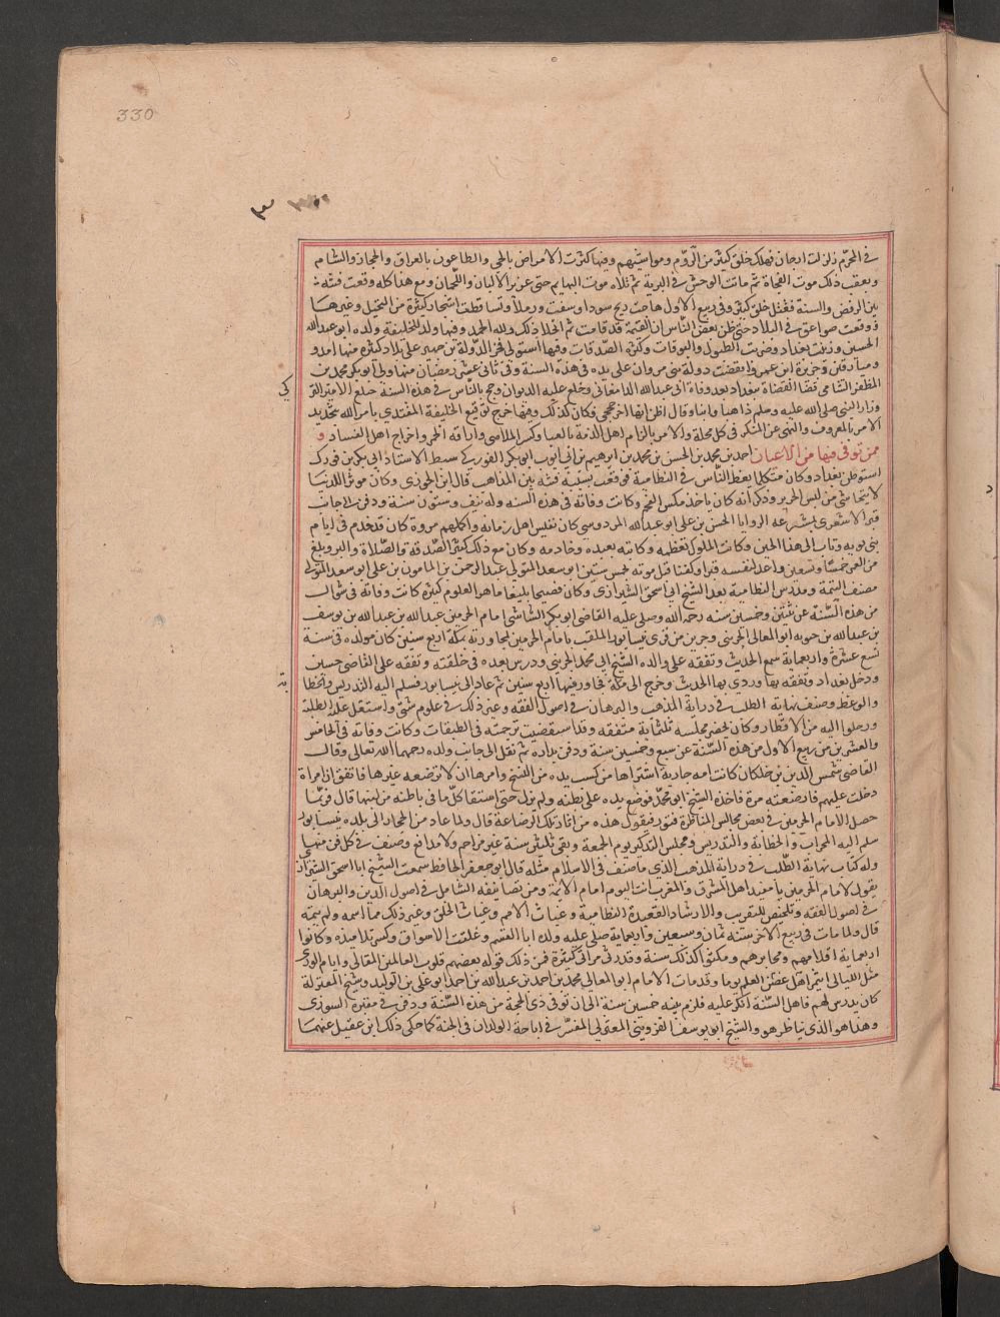 330
في المحرم زلزلت ارجان فهلك خلق كثير من الروم ومواشيهم وفيها كثرت الامراض بالحمى والطاعون بالعراق والحجاز والشام
وبعقب ذلك موت الفجاة ثم ماتت الوحش في البرية ثم تلاه موت البهايم حتى عز بز الالبان واللحمان ومع هذا كله وقعت فتنة
بين الرفض والسنة فقتل خلق كثير وفي ربيع الاول هاجت ريح سودا وسفت ورملا وتساقطت اشجار كثيرة من النخيل وغيرها
ووقعت صواعق في البلاد حتى ظن بعض الناس ان القيمة قد قامت ثم انجلا ذلك ولله الحمد وفيها ولد للخليفة ولده ابو عبد الله
الحسين وزينت بغداد وضربت الطبول والبوقات وكثرة الصدقات وفيها استولى فخر الدولة بن جهير على بلاد كثيرة منها امد و
وميارقين وجزيرة ابن عمر وانقضت دولة بني مروان على يده في هذه السنة وفي ثاني عشر رمضان منها ولى ابو بكر محمد بن
المظفر الشامي قضا القضاة ببغداد بعد وفاة ابي عبد الله الدامغاني وخلع عليه الديوان وحج بالناس في هذه السنة ختلغ الامير التقى
وزار النبي صلى الله عليه وسلم ذاهبا وايبا وقال اظن انها اخر حجتي فكان كذلك وفيها خرج توقيع الخليفة المقتدي بامر الله بتجديد
الامر بالمعروف والنهي عن المنكر في كل محلة والامر بالزام اهل الذمة بالعيار وكسر الملاهي واراقة الخمر واخراج اهل الفساد و
ممن توفي فيها من الاعيان احمد بن محمد بن الحسن بن محمد بن ابرهيم بن ابي ايوب ابو بكر الفوركي سبط الاستاذ ابي بكر بن فورك
استوطن بغداد وكان متكلما يعظ الناس في النظامية فوقعت بسببه فتنة بين المذاهب قال ابن الجوزي وكان موثرا للدنيا
لا يتحاشى من لبس الحرير وذكر انه كان ياخذ مكس الفحم وكانت وفاته في هذه السنه وله نيف وستون سنة ودفن الى جانب
قبر الاشعري بمشرعه الروايا الحسن بن علي ابو عبد الله المردوسي كان نفيس اهل زمانه واكملهم مروة كان قد خدم في ايام
بني بويه وتاب الى هذا الحين وكانت الملوك تعظمه وكاتبه بعبده وخادمه وكان مع ذلك كثير الصدقة والصلاة والبر وبلغ
من العمر خمسا وتسعين واعد لنفسه قبرا وكفنا قبل موته بخمس سنين ابو سعد المتولي عبد الرحمن بن المامون بن علي ابو سعد المتولي
مصنف التتمة ومدرس النظامية بعد الشيخ ابي اسحق الشيرازي وكان فصيحا بليغا ماهرا العلوم كثيرة كانت وفاته في شوال
من هذه السنة عن ثنتين وخمسين سنه رحمه الله وصلى عليه القاضي ابو بكر الشاشي امام الحرمين عبد الله بن عبد الله بن يوسف
بن عبد الله بن حيويه ابو المعالي الجويني وجوين من قرى نيسابور الملقب بامام الحرمين لمجاورته بمكة اربع سنين كان مولده في سنة
تسع عشرة واربعماية سمع الحديث وتفقه على والده الشيخ ابي محمد الجويني ودرس بعده في حلقته وتفقه على القاضي حسين
ودخل بغداد وتفقه بها وروى بها الحديث وخرج الى مكة فجاور فيها اربع سنين ثم عاد الى نيسابور فسلم اليه التدريس والخطابة
والوعظ وصنف نهاية الطلب في دراية المذهب والبرهان في اصول الفقه وغير ذلك في علوم شتى واشتغل عليه الطلبة
ورحلوا اليه من الاقطار وكان يحضر مجلسه ثلثماية متفقه وقد استقضيت ترجمته في الطبقات وكانت وفاته في الخامس
والعشرين من ربيع الاول من هذه السنة عن سبع وخمسين سنة ودفن بداره ثم نقل الى جانب والده رحمهما الله تعالى وقال
القاضي شمس الدين بن خلكان كانت امه جارية اشتراها من كسب يده من النسخ وامرها ان لا ترضعه غيرها فاتفق ان امراة
دخلت عليهم فارضعته مرة فاخذه الشيخ ابو محمد فوضع يده على بطنه ولم يزل حتى استقا كل ما في باطنه من لبنها قال فربما
حصل لامام الحرمين في بعض مجالس المناظرة فتور فيقول هذه من اثار تلك الرضاعة قال ولما عاد من الحجاز الى بلده نيسابور
سلم اليه المحراب والخطابة والتدريس ومجلس التذكير يوم الجمعة وبقي ثلثين سنة غير مزاحم ولا مدافع وصنف في كل فن منها
وله كتاب نهاية الطلب في دراية المذهب الذي ما صنف في الاسلام مثله قال ابو جعفر الحافظ سمعت الشيخ ابا اسحق الشيرازي
يقول لامام الحرمين يا مفيد اهل المشرق والمغرب انت اليوم امام الائمة ومن تصانيفه الشامل في اصول الدين والبرهان
في اصول الفقه وتلخيص للتقريب والارشاد العقيدة النظامية وغياث الامم وغياث الخلق وغير ذلك مما اسمه ولم يتمه
قال ولما مات في ربيع الاخر سنة ثمان وسبعين واربعماية صلى عليه ولده ابا القسم وغلقت الاسواق وكسر تلاميذه وكانوا
اربعماية اقلامهم ومحابرهم ومكثوا كذلك سنة وقد رثي مراثي كثيرة فمن ذلك قوله بعضهم قلوب العالمين المقالي وايام الورى
مثل الليالي ايثمر اهل غصن العلم يوما وقد مات الامام ابو المعالي محمد بن احمد بن عبد الله بن احمد ابو علي بن الوليد وشيخ المعتزلة
كان يدرس لهم فاهل السنة انكر عليه فلزم بيته خمسين سنة الى ان توفي في ذي الحجة من هذه السنة ودفن في مقبرة الشونزي
وهذا هو الذي تناظر هو والشيخ ابو يوسف القزويني المعتزلي المفسر في اباحة الولدان في الجنة كما حكى ذلك ابن عقيل عنهما